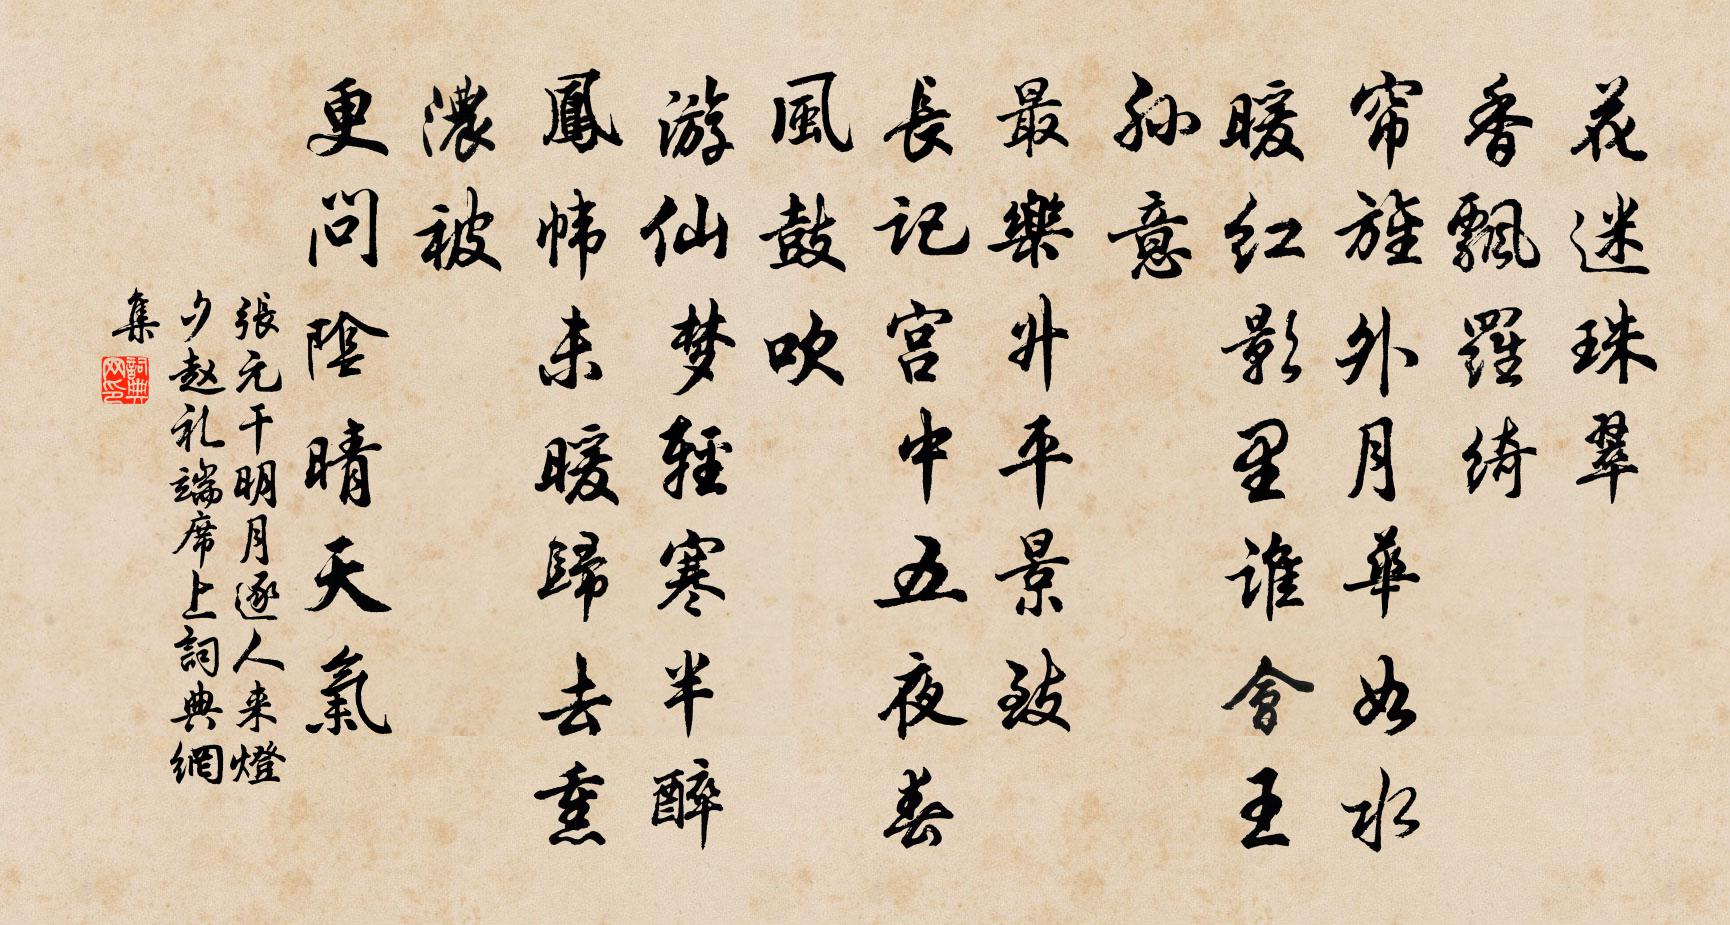 花迷珠翠
香飄羅綺
帘旌外月華如水
暖红影里誰會王
孙意
最樂升平景致
長记宫中五夜春
風鼓吹
游仙梦輕寒半醉
鳳帏未暖歸去熏
濃被
更问陰晴天氣
張元干明月逐人来燈
夕赵礼端席上詞典網
集
詞典
网印